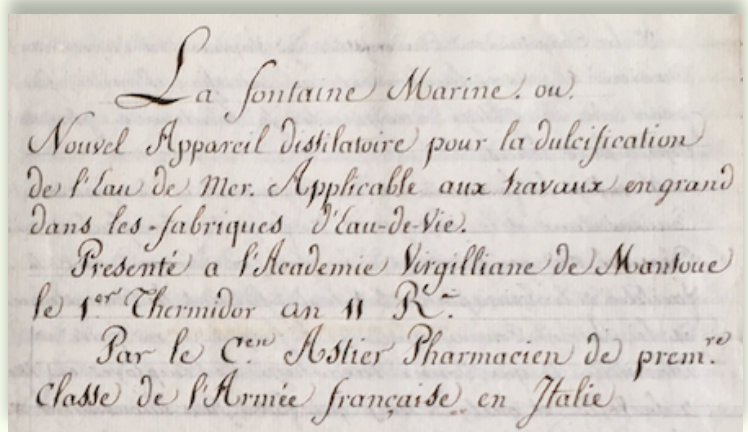 La fontaine Marine. ou.
Nouvel Appareil distilatoire pour la dulcification
de l'Eau de Mer. Applicable aux travaux en grand
dans les fabriques d'Eau-de-Vie.
Presenté a l'Academie Virgilliane de Mantoue
le 1.er Thermidor an 11 R.e
Par le C.en Astier Pharmacien de prem.re
Classe de l'Armée française en Italie